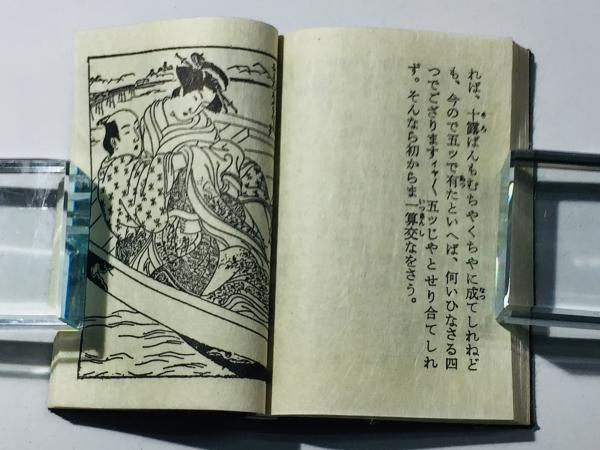 れば、十露ばんもむちやくちやに成てしれねど
も、今ので五ツで有たといへば、何いひなさる四
つでござりますィャ〱五ツじやとせり合てしれ
ず。そんなら初からま一算交なをさう。